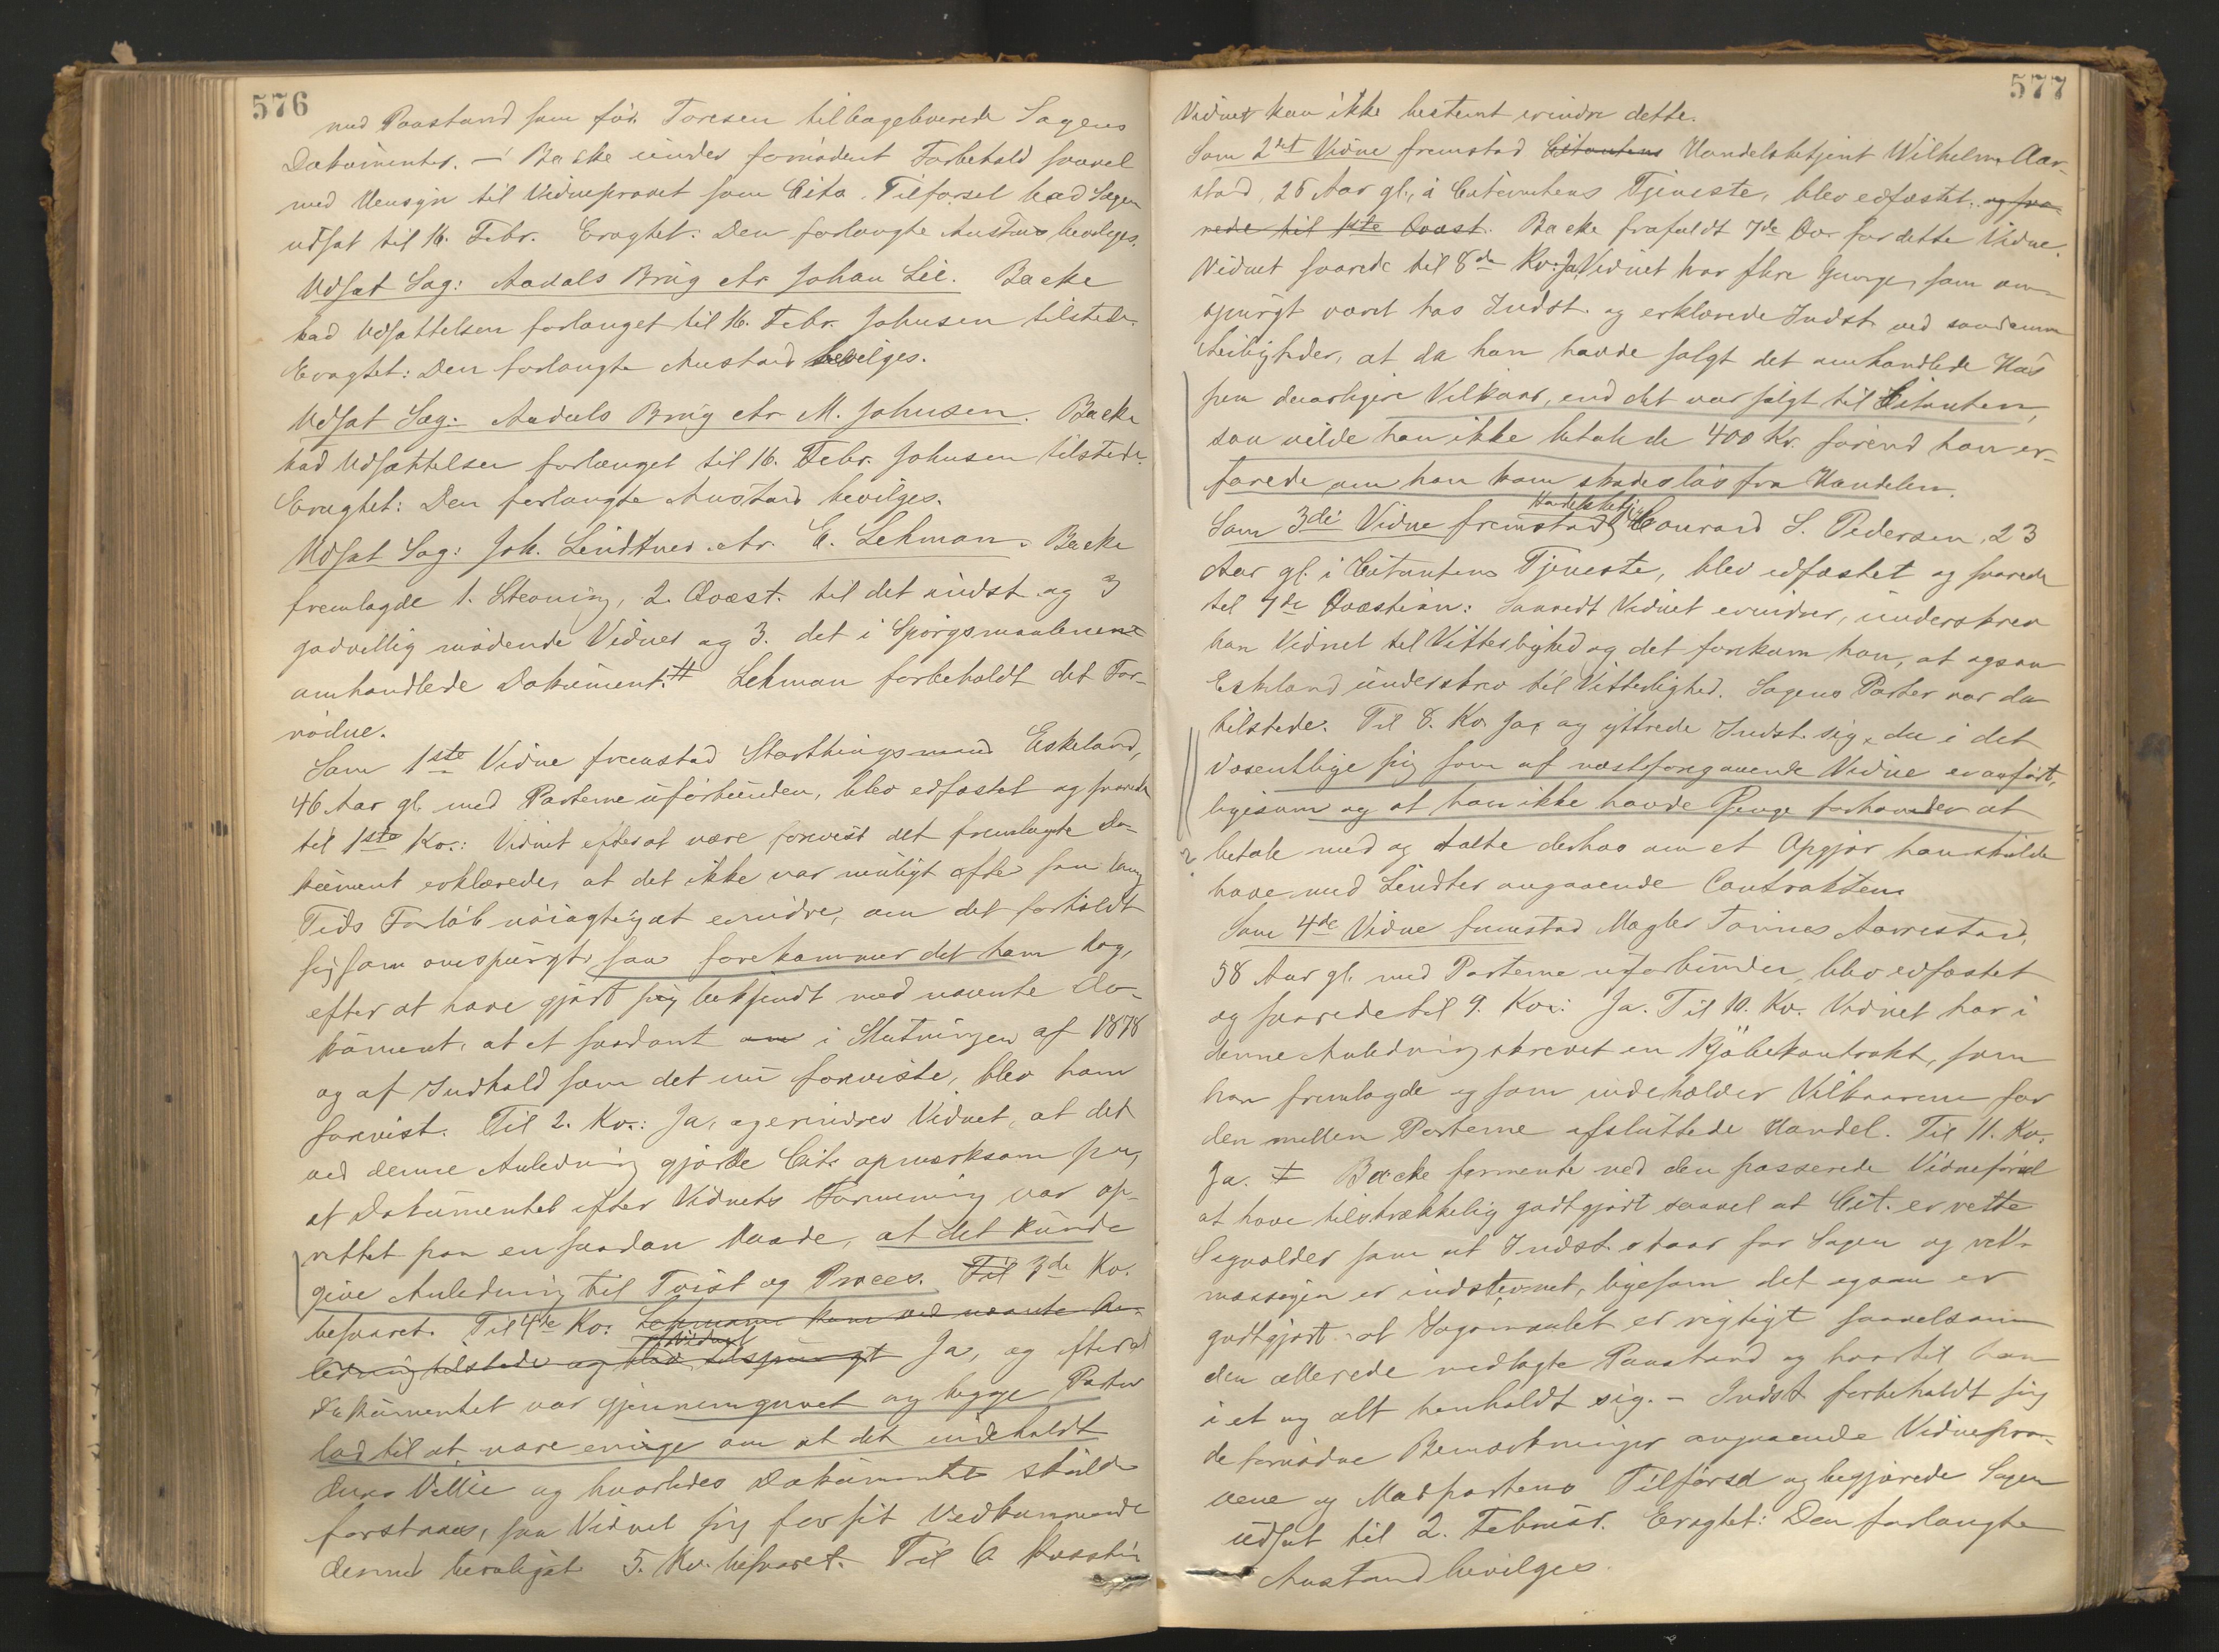 576
med Paastand som før. Toresen tilbageleverede Sagens
Dokumenter. — Backe under fornødent Forbehold saavel
med Hensyn til Vidneprovet som Cita. Tilførsel bad Sagen
udsat til 16. Febr. Eragtet: Den forlangte Anstand bevilges.
Udsat Sag: Aadals Brug ctr Johan Lie. Backe
bad Udsættelsen forlænget til 16. Febr. Johnsen tilstede.
Eragtet: Den forlangte Anstand bevilges.
Udsat Sag: Aadals Brug ctr M. Johnsen. Backe
bad Udsættelsen forlænget til 16. Febr. Johnsen tilstede.
Eragtet: Den forlangte Anstand bevilges.
Udsat Sag: Joh. Lindtner ctr. E. Lehman. Backe
fremlagde 1. Stevning, 2. Qvæst. til det indst. og 3
godvillig mødende Vidner og 3. det i Spørgsmaalene
omhandlede Dokument. # Lehman forbeholdt det For-
nødne.
Som 1ste Vidne fremstod Storthingsmand Eskeland,
46 Aar gl. med Parterne uforbunden, blev edfæstet og svarede
til 1ste Kv.: Vidnet efterat være forevist det fremlagte Do-
kument erklærede, at det ikke var muligt efter saa lang
Tids Forløb nøiagtig at erindre, om det forholdt
sig som omspurgt, saa forekommer det ham dog,
efter at have gjort sig bekjendt med nævnte Do-
kument, at et saadant i Slutningen af 1878
og af Indhold som det nu foreviste, blev ham
forevist. Til 2. Kv.: Ja, og erindrer Vidnet, at det
ved denne Anledning gjorde Cit. opmærksom paa,
at Dokumentet efter Vidnets Formening var op-
rettet paa en saadan Maade, at det kunde
give Anledning til Tvist og Proces. Til 3de Kv.
besvaret. Til 4de Kv. Lehmann kom ved nævnte An-
ledning tilstede og blev af Vidnet tilspurgt Ja, og efterat
Dokumentet var gjennemgaaet og begge Parter
lod til at være enige om at det indeholdt
deres Villie og hvorledes Dokumentet skulde
forstaaes, saa Vidnet sig for sit Vedkommende
dermed beroliget. 5. Kv. besvaret. Til 6 Kvæstion
577
Vidnet kan ikke bestemt erindre dette.
Som 2det Vidne fremstod Citantens Handelsbetjent Wilhelm Aar-
stad, 26 Aar gl., i Citantens Tjeneste, blev edfæstet og sva-
rede til 1ste Qvæst. Backe frafaldt 7de Qv. for dette Vidne.
Vidnet svarede til 8de Kv. Ja, Vidnet har flere Gange, som om-
spurgt været hos Indst. og erklærede Indst. ved saadanne
Leiligheder, at da han havde solgt det omhandlede Hus
paa daarligere Vilkaar, end det var solgt til Citanten,
saa vilde han ikke betale de 400 Kr. førend han er-
farede om han kom skadesløs fra Handelen.
Som 3die Vidne fremstod Handelsbetj. Conrad S. Pedersen, 23
Aar gl. i Citantens Tjeneste, blev edfæstet og svarede
til 7de Qvæstion: Saavidt Vidnet erindrer, underskrev
han Vidnet til Vitterlighed og det forekom ham, at ogsaa
Eskeland underskrev til Vitterlighed. Sagens Parter var da
tilstede. Til 8. Kv. Ja, og yttrede Indst. sig da i det
Væsentlige sig som af næstforegaaende Vidne er anført,
ligesom og at han ikke havde Penge forhaanden at
betale med og talte derhos om et Opgjør han skulde
have med Lindtner angaaende Contrakten.
Som 4de Vidne fremstod Megler Tønnes Aarrestad,
58 Aar gl. med Parterne uforbunden, blev edfæstet
og svarede til 9. Kv.: Ja. Til 10. Kv. Vidnet har i
denne Anledning skrevet en Kjøbekontrakt, som
han fremlagde og som indeholder Vilkaarene for
den mellem Parterne afsluttede Handel. Til 11. Kv.
Ja. ‡ Backe formente ved den passerede Vidneførsel
at have tilstrækkelig godtgjort saavel at Cit. er rette
Sagvolder som at Indst. svarer for Sagen og ret-
mæssigen er indstevnet, ligesom det ogsaa er
godtgjort at Søgsmaalet er rigtigt saavelsom
den allerede nedlagte Paastand og hvortil han
i et og alt henholdt sig. — Indst. forbeholdt sig
de fornødne Bemærkninger angaaende Vidnepro-
vene og Modpartens Tilførsel og begjærede Sagen
udsat til 2. Februar. Eragtet: Den forlangte
Anstand bevilges.